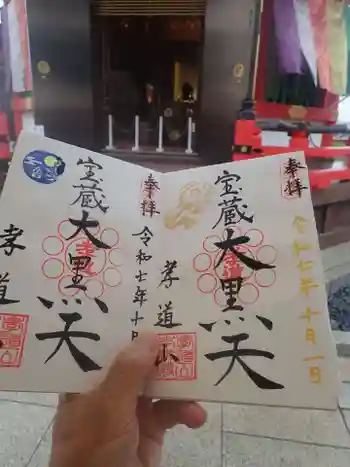 奉拝
令和七年十月一日
宝蔵
大黒天
孝道山
奉拝
令和七年十
宝蔵
大黒天
孝道